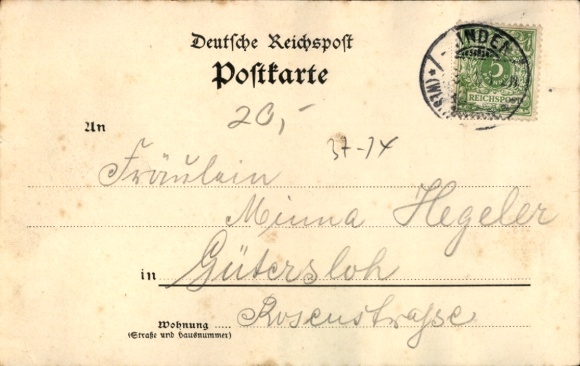 Deutsche Reichspost
Postkarte
MINDEN
5
REICHSPOST
20,-
37-14
An
Fräulein
Minna Hegeler
in Gütersloh
Rosenstraße
Wohnung
(Straße und Hausnummer)